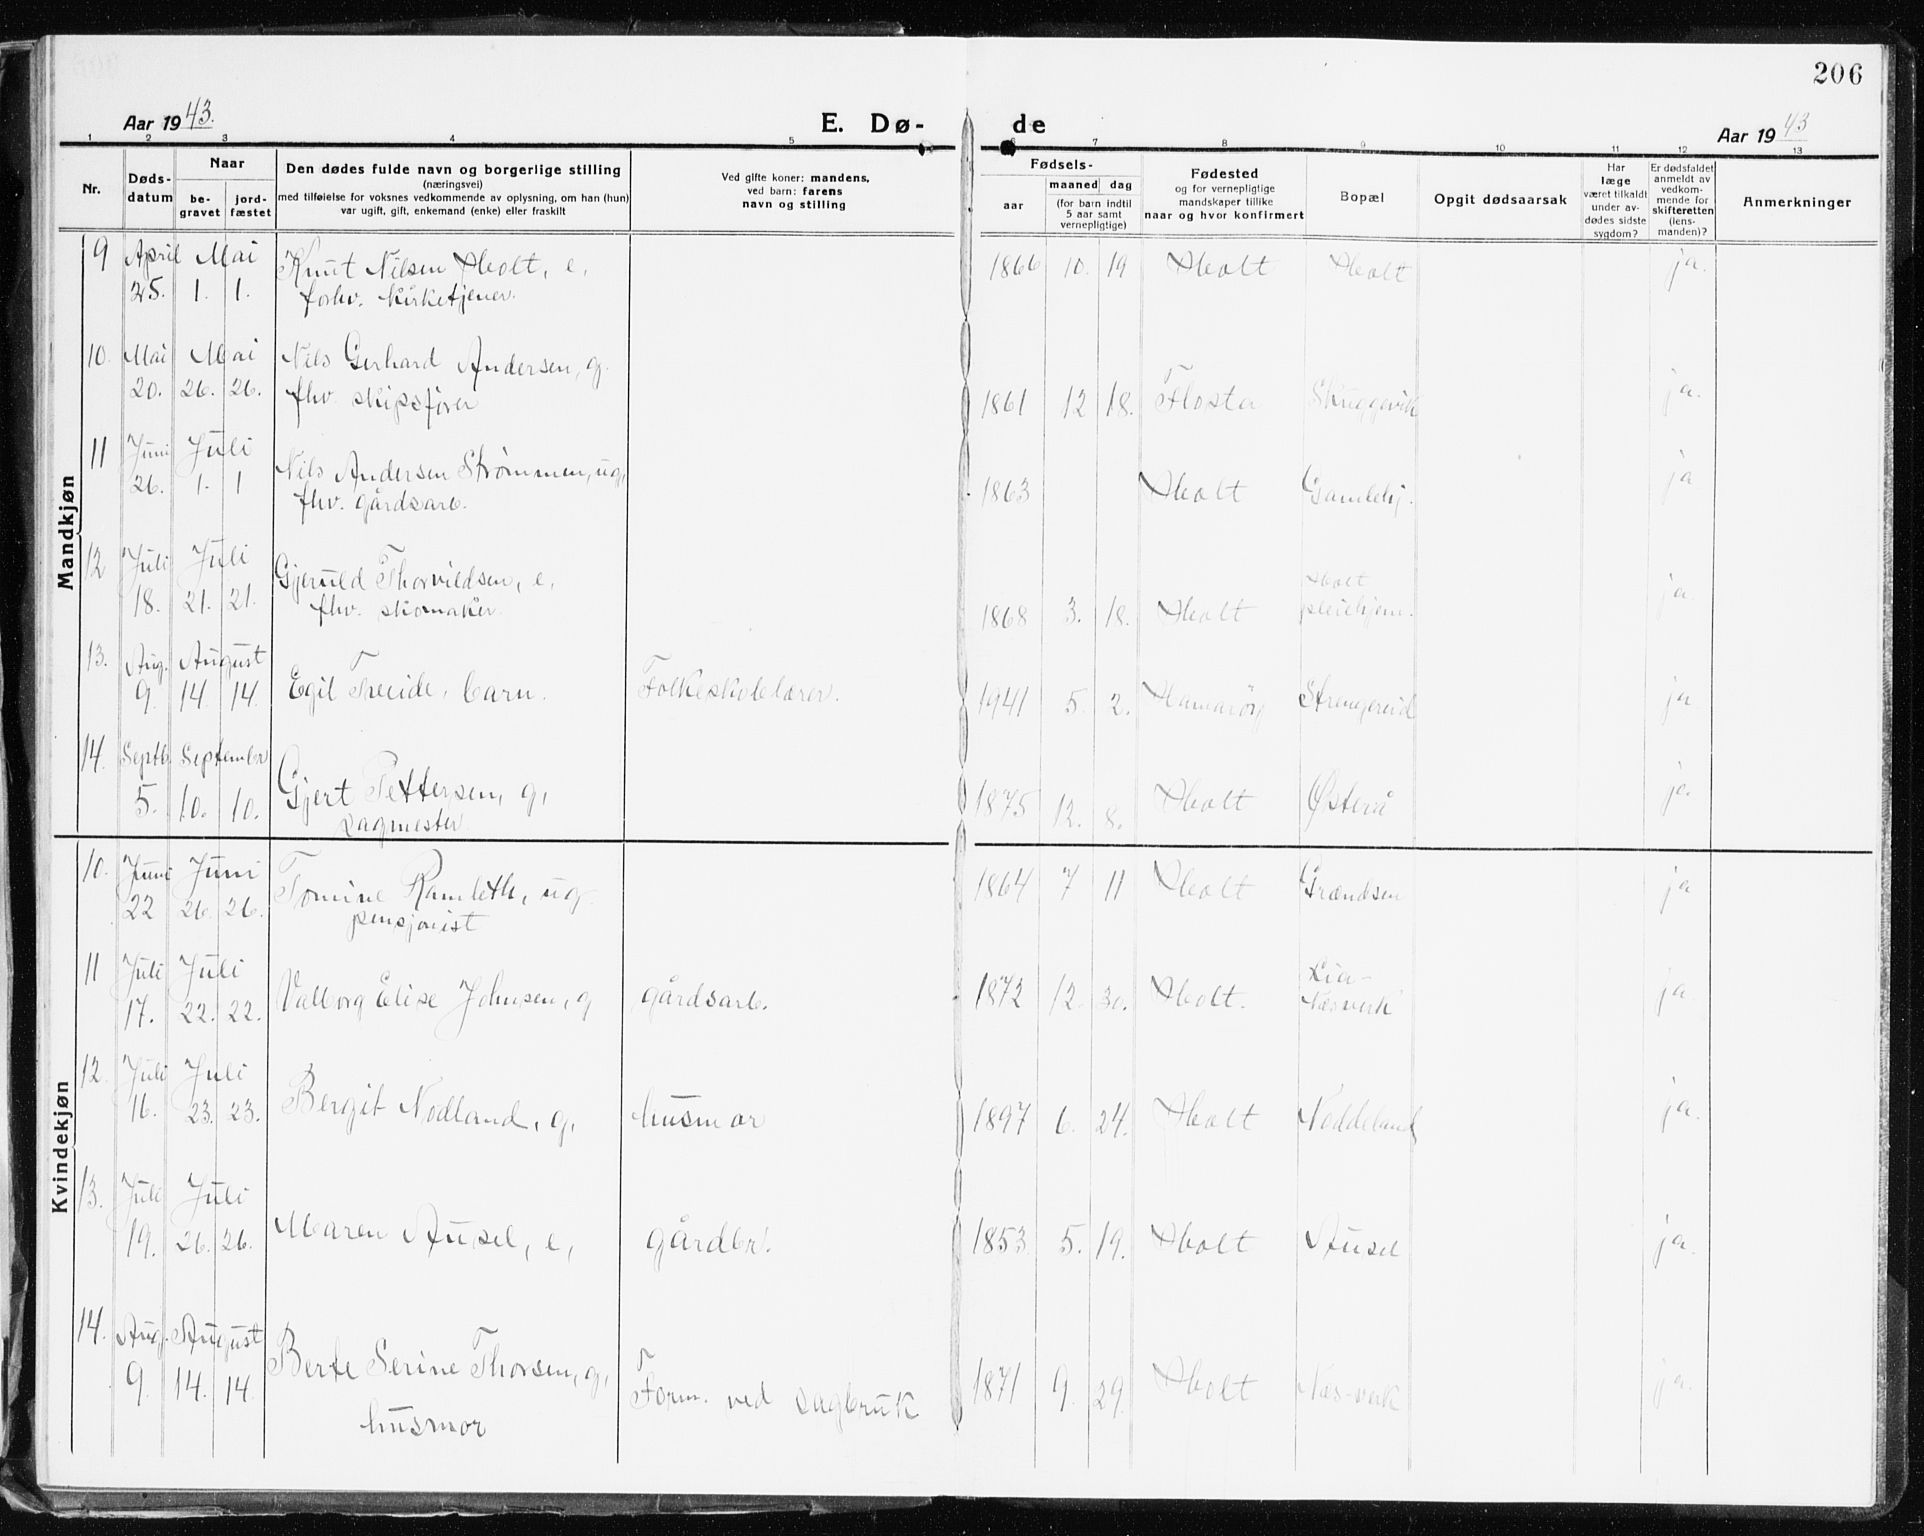 206
Aar 1943.
E. Dø-
de
Aar 1943
1 2 3 4 5 6 7 8 9 10 11 12 13
Nr.
Døds-
datum
Naar
be-
gravet
jord-
fæstet
Den dødes fulde navn og borgerlige stilling
(næringsvei)
med tilføielse for voksnes vedkommende av oplysning, om han (hun)
var ugift, gift, enkemand (enke) eller fraskilt
Ved gifte koner: mandens,
ved barn: farens
navn og stilling
Fødsels-
aar
maaned dag
(for barn indtil
5 aar samt
vernepligtige)
Fødested
og for vernepligtige
mandskaper tillike
naar og hvor konfirmert
Bopæl
Opgit dødsaarsak
Har
læge
været tilkaldt
under av-
dødes sidste
sygdom?
Er dødsfaldet
anmeldt av
vedkom-
mende for
skifteretten
(lens-
manden)?
Anmerkninger
Mandkjøn
9 April Mai Knut Nilsen Holt, e, 1866 10. 19 Holt Holt ja.
25. 1. 1. forhv. kirketjener.
10. Mai Mai Nils Gerhard Andersen, g.
20. 26. 26. fhv. skipsfører 1861 12 18. Flosta Skuggevik ja.
11 Juni Juli Nils Andersen Strømmen, ug,
26. 1. 1 fhv. gårdsarb. 1863 Holt Gamlehj. ja
12 Juli Juli Gjeruld Thorvildsen, e, Holt
18. 21. 21. fhv. skomaker. 1868 3. 18. Holt pleiehjem. ja.
13. Aug. August
9. 14. 14. Egil Treide, barn. Folkeskolelærer. 1941 5. 2. Hamarøy Strengereid ja
14. Septb. September
5. 10. 10. Gjert Pettersen, g, 1875 12. 8. Holt Østerå ja.
sagmester.
Kvindekjøn
10. Juni Juni Tomine Ramleth, ug. 1864 7 11 Holt Grændsen ja
22 26. 26. pensjonist
11 Juli Juli Lia-
17. 22. 22. Valborg Elise Johnsen, g gårdsarb. 1872 12. 30. Holt. Næsverk ja.
12. Juli Juli
16. 23. 23. Bergit Nodland, g, husmor 1897 6. 24. Holt Noddeland ja.
13. Juli Juli
19. 26. 26. Maren Ausel, e, gårdbr. 1853 5. 19. Holt Ausel ja.
14. Aug. August
9. 14. 14. Berte Serine Thorsen, g, Form. ved sagbruk 1871 9. 29. Holt Næs-verk ja.
husmor